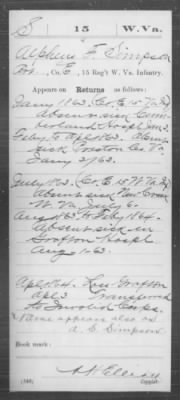 S | 15 | W. Va.
Alpheus F. Simpson
Co. E, 15 Reg't W. Va. Infantry.
Appears on Returns as follows:
Jany 1863. (Co. E. 15 Va Inf)
Absent sick Cum-
berland Hospl Jan 2.
Feby to
sick Preston Co. Va
Jany 2/63.
July 1863. (Co. E. 15 W Va Inf)
Absent sick New Creek
W. Va July 6.
Aug 1863 to Feby 1864.
Absent sick in
Grafton Hospl
Aug 1-63.
Apl 1864. Loss Grafton
Apl 3 Transferred
to Invalid Corps.
Name appears also as
A. C. Simpson
Book mark:
(546)
Copyist.